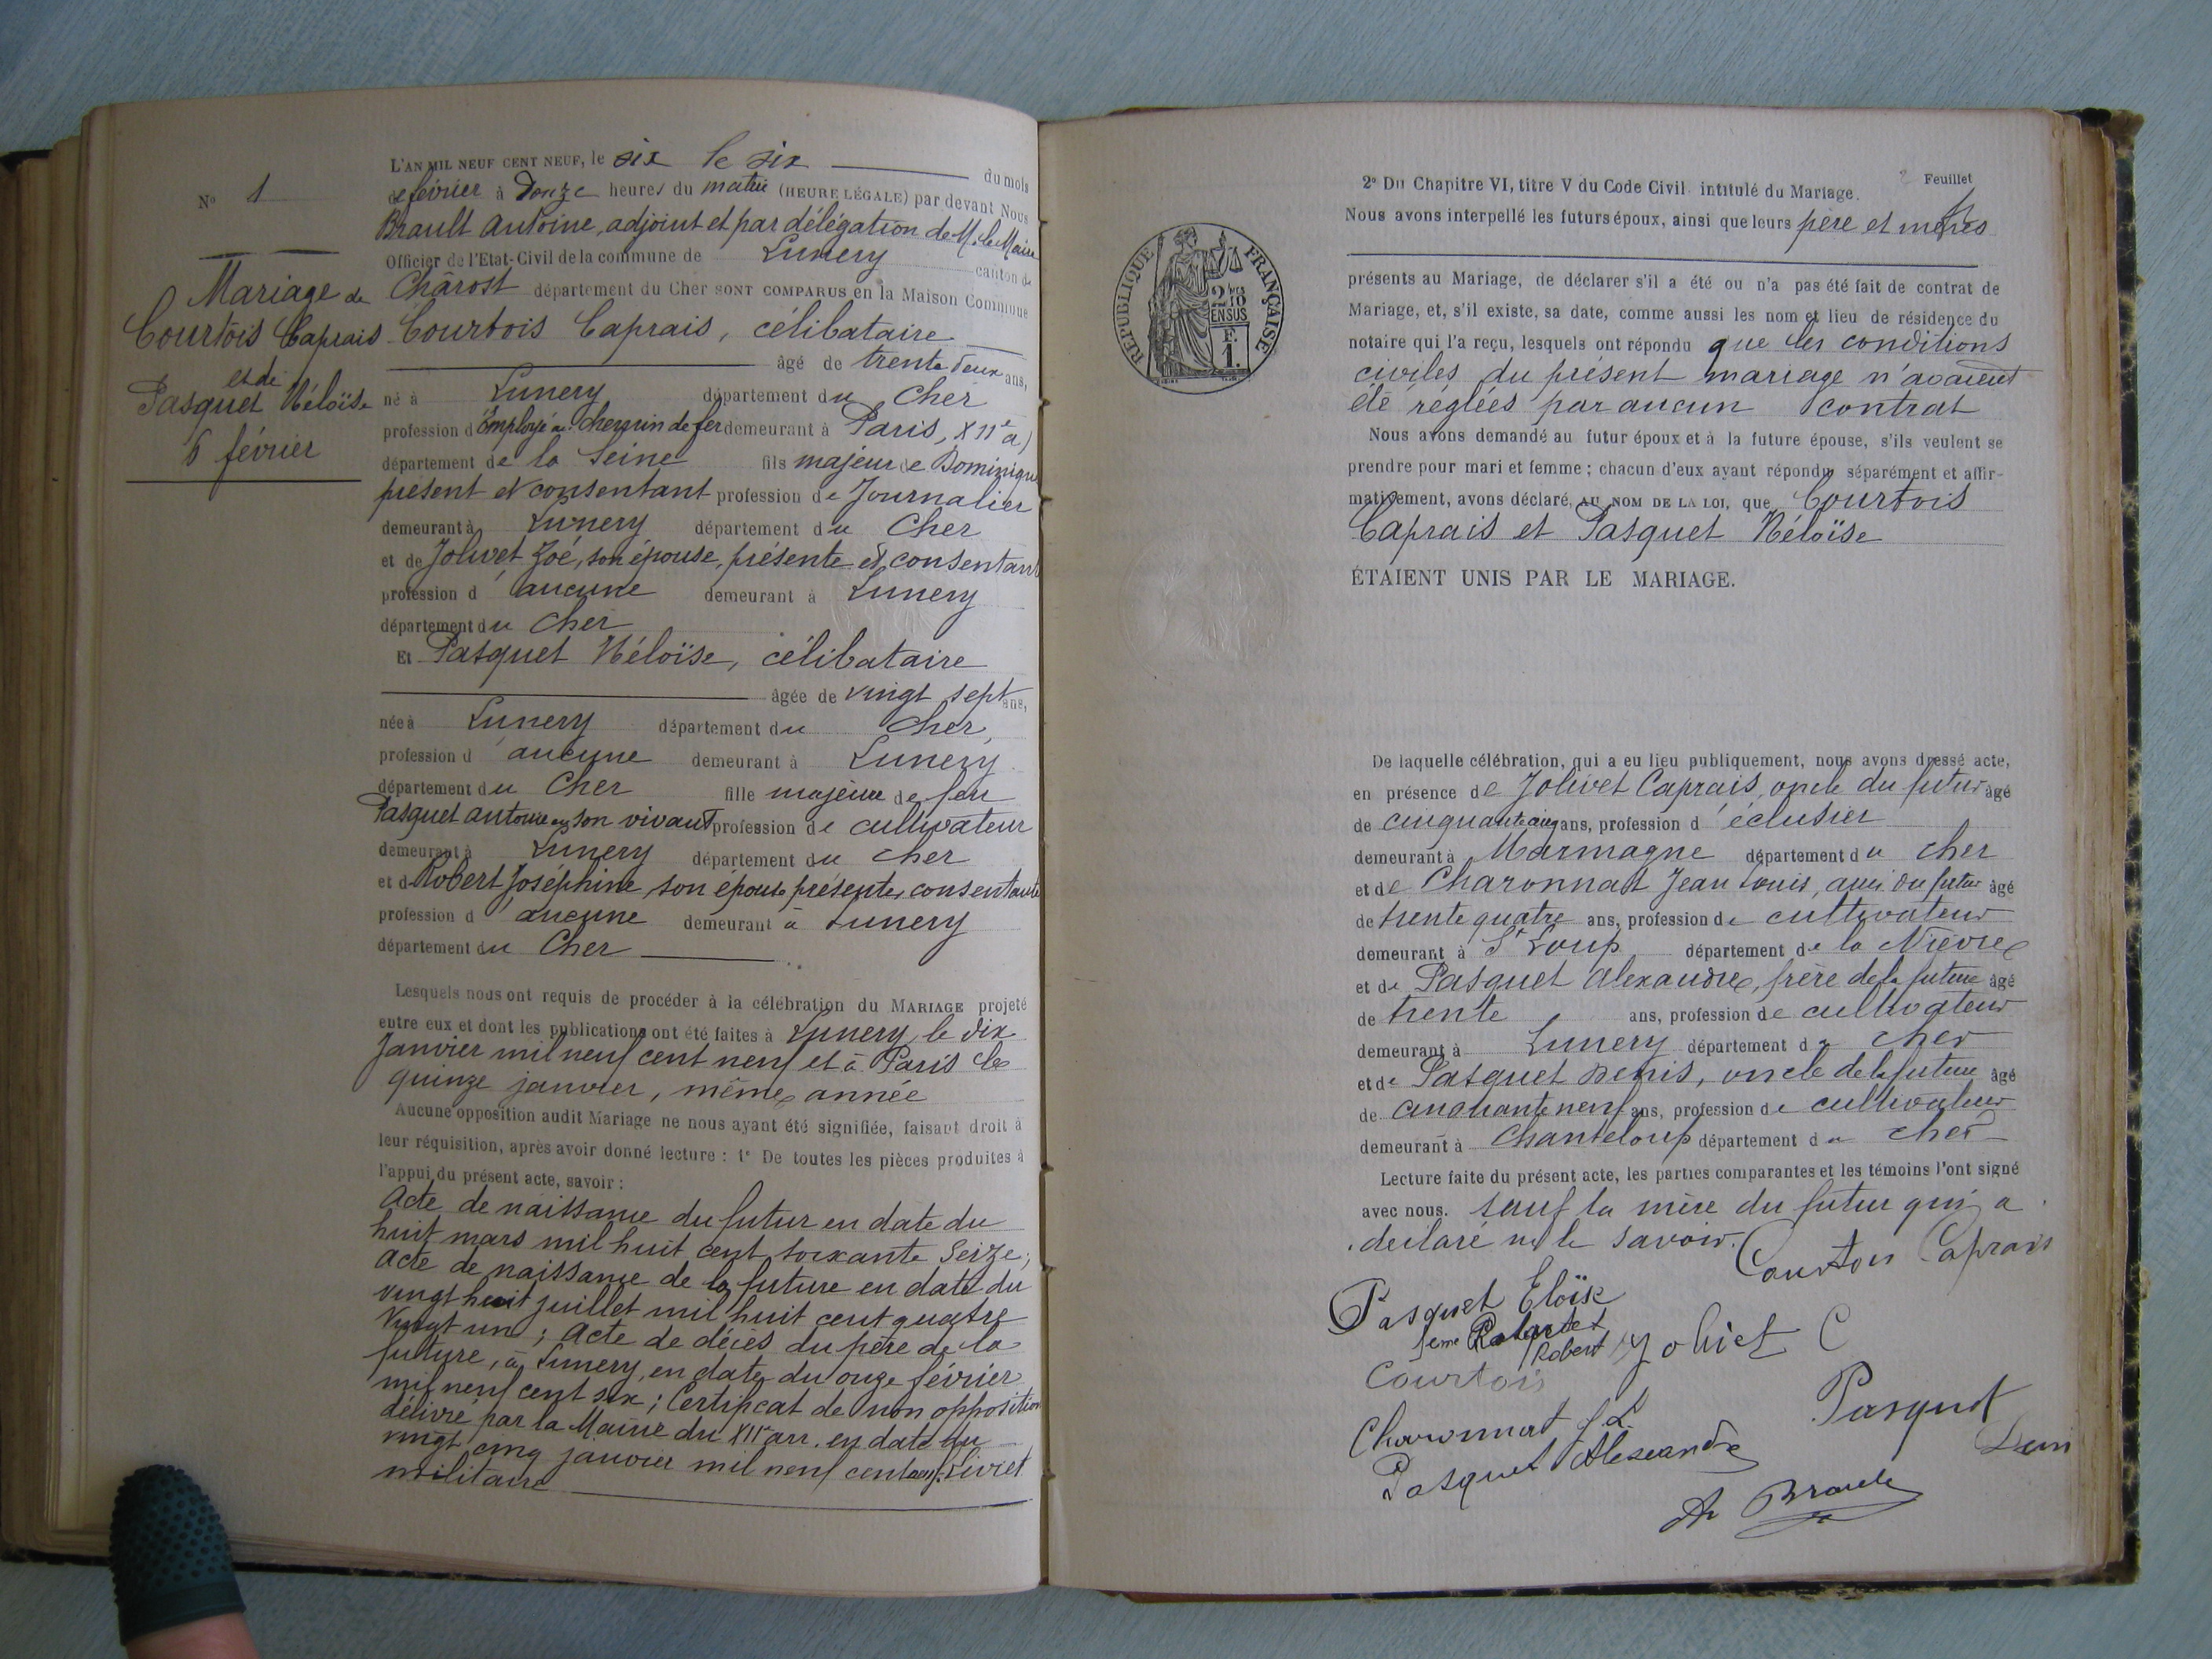 N° 1
Mariage de
Courtois Caprais
et de
Pasquet Héloïse
6 février
L'AN MIL NEUF CENT NEUF, le six le six du mois
de février à onze heures du matin (HEURE LÉGALE) par devant Nous
Brault Antoine, adjoint et par délégation de M. le Maire
Officier de l'Etat-Civil de la commune de Lunery canton de
Chârost département du Cher SONT COMPARUS en la Maison Commune
Courtois Caprais, célibataire
âgé de trente deux ans,
né à Lunery département du Cher
profession d'Employé au chemin de fer demeurant à Paris, XIIe a)
département de la Seine fils majeur de Dominique
présent et consentant profession de Journalier
demeurant à Lunery département du Cher
et de Jolivet Zoé, son épouse, présente et consentant
profession d'aucune demeurant à Lunery
département du Cher
Et Pasquet Héloïse, célibataire
âgée de vingt sept ans,
née à Lunery département du Cher,
profession d'aucune demeurant à Lunery
département du Cher fille majeure de feu
Pasquet Antoine en son vivant profession de cultivateur
demeurant à Lunery département du Cher
et de Robert Joséphine, son épouse présente, consentante
profession d'aucune demeurant à Lunery
département du Cher
Lesquels nous ont requis de procéder à la célébration du MARIAGE projeté
entre eux et dont les publications ont été faites à Lunery, le dix
Janvier mil neuf cent neuf et à Paris le
quinze janvier, même année
Aucune opposition audit Mariage ne nous ayant été signifiée, faisant droit à
leur réquisition, après avoir donné lecture : 1° De toutes les pièces produites à
l'appui du présent acte, savoir :
Acte de naissance du futur en date du
huit mars mil huit cent soixante Seize;
Acte de naissance de la future en date du
vingt huit juillet mil huit cent quatre
vingt un ; Acte de décès du père de la
future, à Lunery, en date du onze février
mil neuf cent six ; Certificat de non opposition
délivré par la Mairie du XIIe arr. en date du
vingt cinq janvier mil neuf cent neuf; Livret
militaire
Feuillet
2° Du Chapitre VI, titre V du Code Civil intitulé du Mariage.
Nous avons interpellé les futurs époux, ainsi que leurs père et mères
présents au Mariage, de déclarer s'il a été ou n'a pas été fait de contrat de
Mariage, et, s'il existe, sa date, comme aussi les nom et lieu de résidence du
notaire qui l'a reçu, lesquels ont répondu que les conditions
civiles du présent mariage n'avaient
été réglées par aucun contrat
Nous avons demandé au futur époux et à la future épouse, s'ils veulent se
prendre pour mari et femme ; chacun d'eux ayant répondu séparément et affir-
mativement, avons déclaré, AU NOM DE LA LOI, que Courtois
Caprais et Pasquet Héloïse
ÉTAIENT UNIS PAR LE MARIAGE.
RÉPUBLIQUE FRANÇAISE
EN SUS
F.
1.
De laquelle célébration, qui a eu lieu publiquement, nous avons dressé acte,
en présence de Jolivet Caprais, oncle du futur âgé
de cinquante cinq ans, profession d'éclusier
demeurant à Marmagne département du Cher
et de Charonnat Jean Louis, ami du futur âgé
de trente quatre ans, profession de cultivateur
demeurant à St Loup département de la Nièvre
et de Pasquet Alexandre, frère de la future âgé
de trente ans, profession de cultivateur
demeurant à Lunery département du Cher
et de Pasquet Denis, oncle de la future âgé
de cinquante neuf ans, profession de cultivateur
demeurant à Chanteloup département du Cher
Lecture faite du présent acte, les parties comparantes et les témoins l'ont signé
avec nous. Sauf la mère du futur qui a
déclaré ne le savoir.
Courtois Caprais
Pasquet Eloïse
Robert Jolivet C
Courtois
Charonnat J L
Pasquet
Pasquet Alexandre
Deni
A Brault